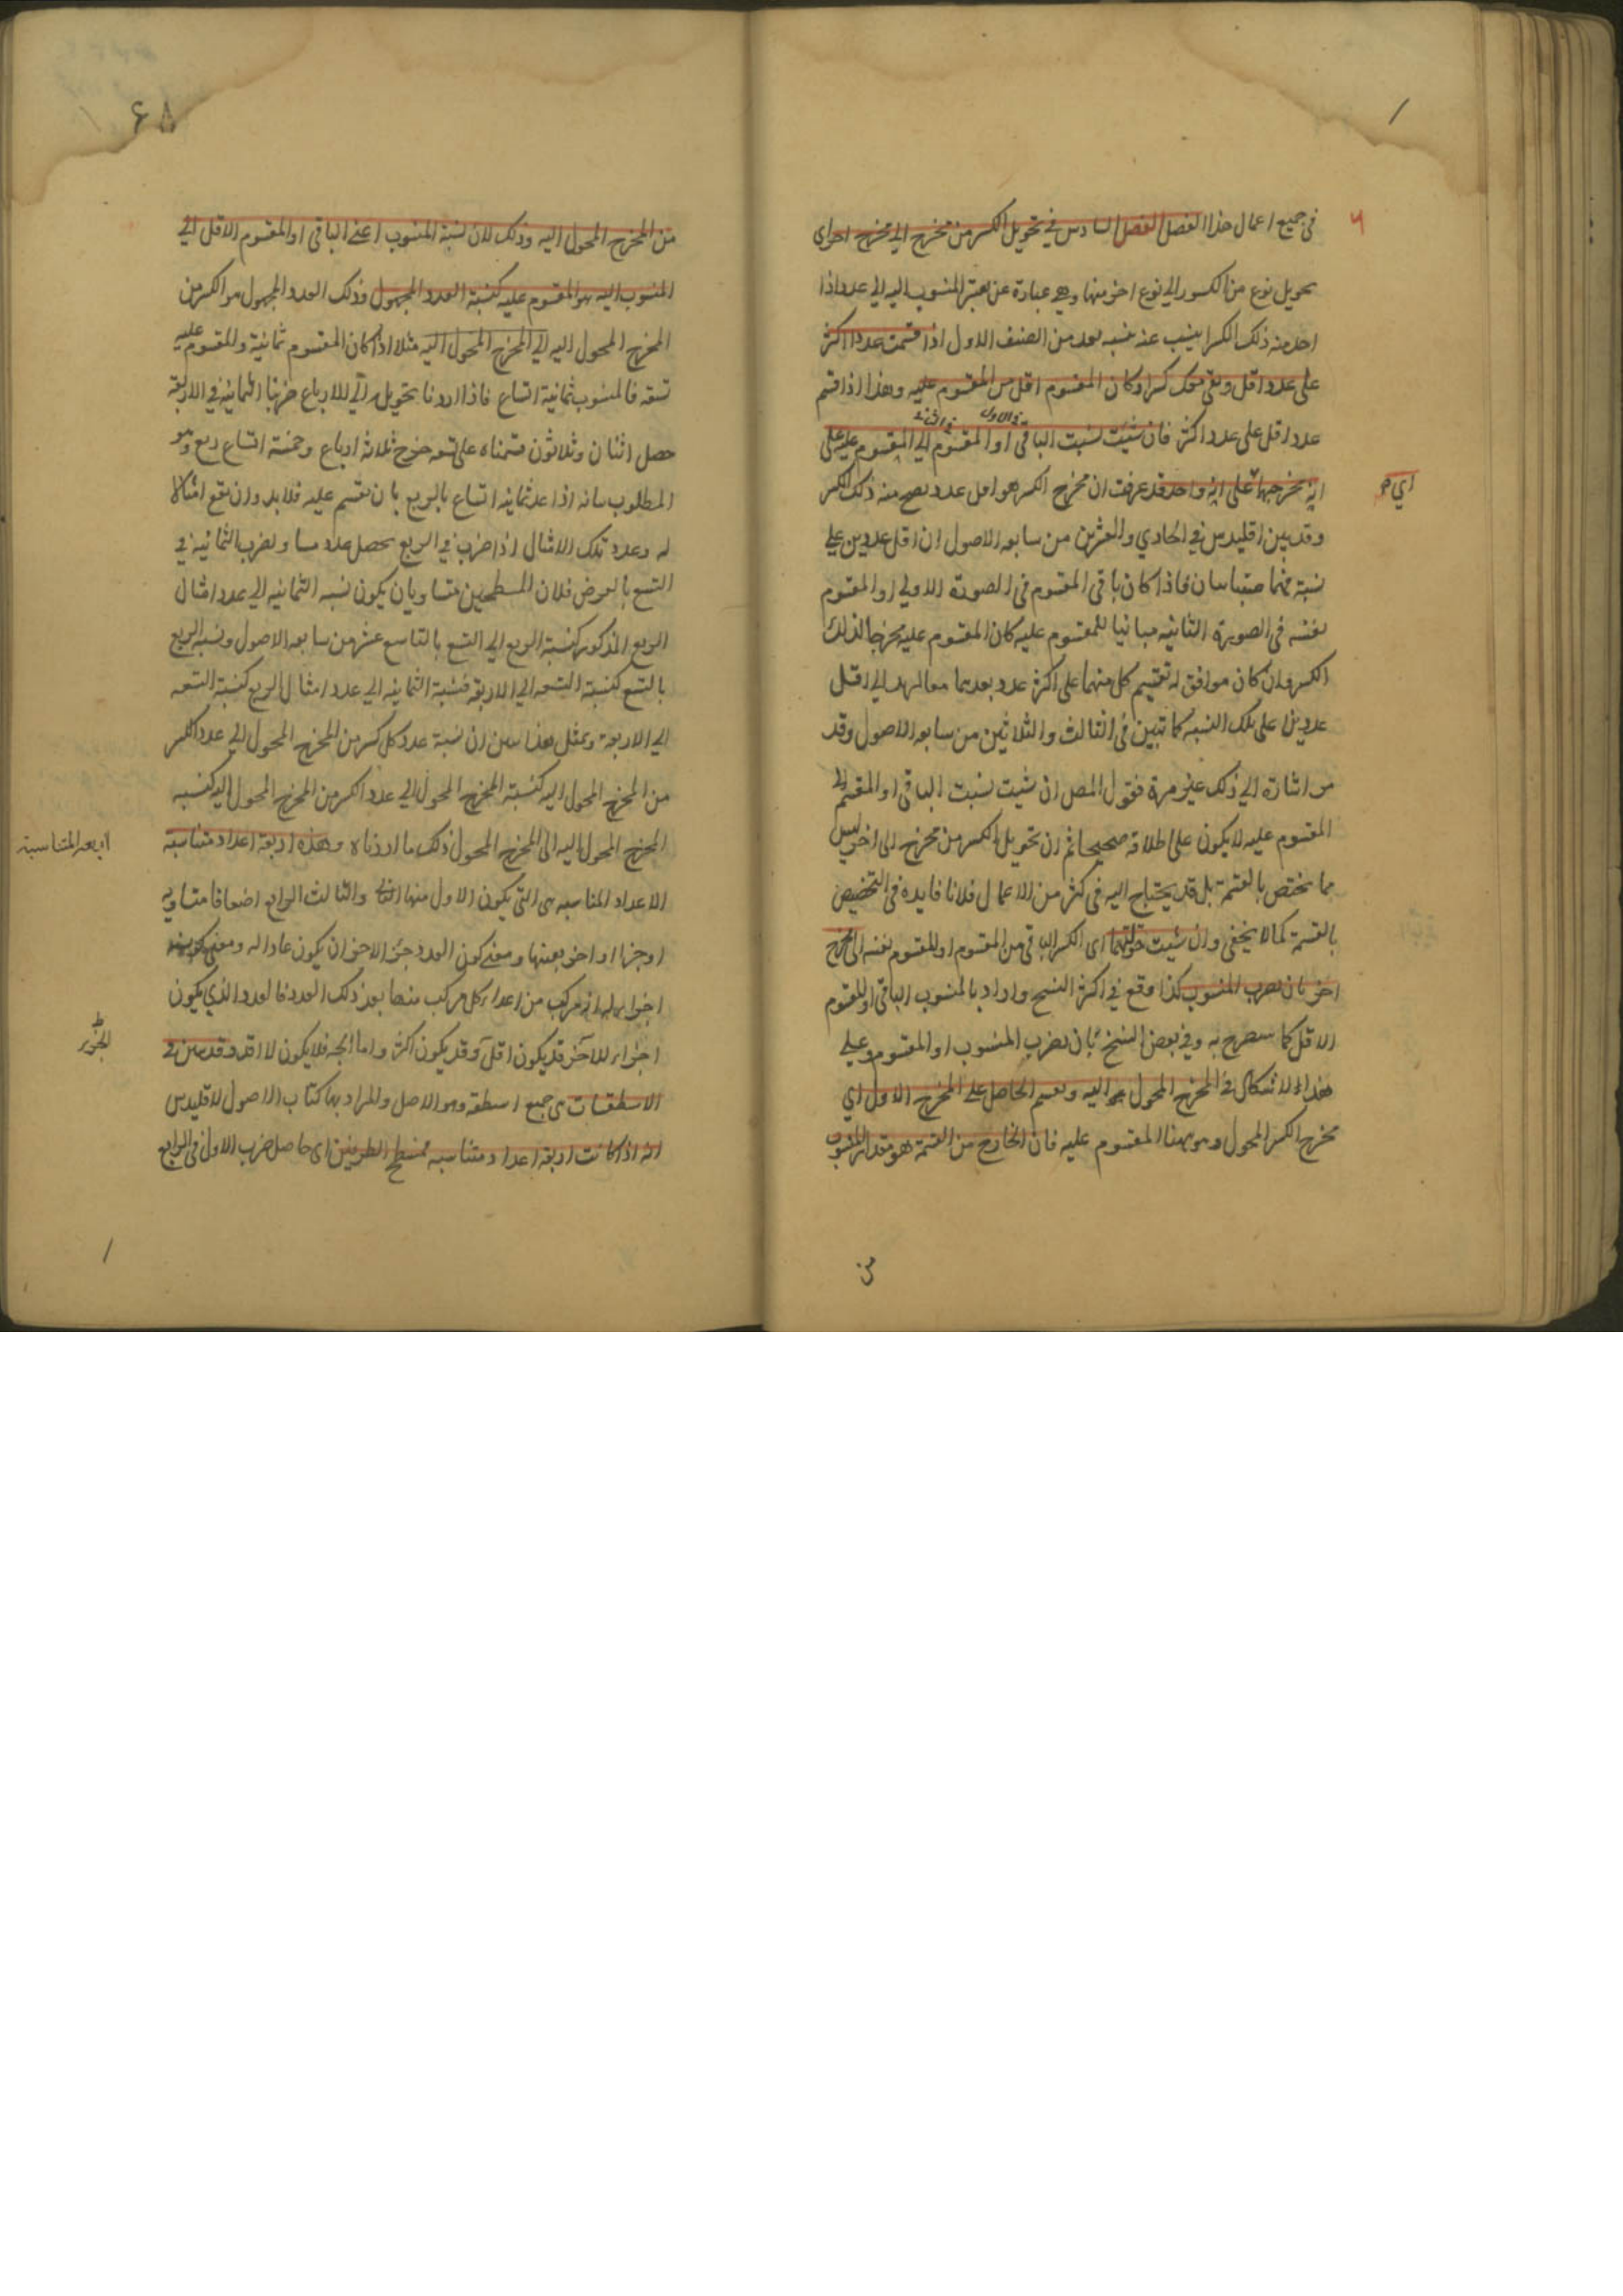 في جميع اعمال هذا الفصل الفصل السادس في تحويل الكسر من مخرج الى مخرج اخر اى
تحويل نوع من الكسور الي نوع اخر منها وهي عبارة عن تغيير المنسوب اليه الي عدد اذا
اخذ منه ذلك الكسر ينسب عنه بعد من الصنف الاول اذا قسمت عددا اكثر
على عدد اقل وبقى معك كسر او كان المقسوم اقل من المقسوم عليه وهذا اذا قسم
في الاول في الثاني
عدد اقل على عدد اكثر فان شئت نسبت الباقى او المقسوم الي المقسوم عليه على
انه مخرجهما على انه واحد قد عرفت ان مخرج الكسر هو اقل عدد يصح منه ذلك الكسر
اي ح
وقد بين اقليدس في الحادي والعشرين من سابعه الاصول ان اقل عددين علي
نسبة فهما متباينان فاذا كان باقى المقسوم فى الصورة الاولي او المقسوم
نفسه فى الصورة الثانيه مباينا للمقسوم عليه كان المقسوم عليه مخرجا لذلك
الكسر وان كان موافق له نقسم كل منهما على اكثر عدد يعدهما الي اقل
عددين على تلك النسبه كما تبين في الثالث والثلاثين من سابعه الاصول وقد
مر اشارة الي ذلك غير مرة فقول المص ان شيت نسبت الباقى او المقسم الي
المقسوم عليه لا يكون على اطلاقه صحيحا ثم ان تحويل الكسر من مخرج الى اخر ليس
مما يختص بالقسمة بل قد يحتاج اليه فى كثر من الاعمال فلا فايده فى التخصيص
بالقسمة كما لا يخفى وان شيت حولتهما اى الكسر الباقى من المقسوم او المقسوم نفسه الى مخرج
اخر بان يضرب المنسوب كذا وقع في اكثر النسخ واراد بالمنسوب الباقى او المقسوم
الاقل كما سيصرح به وفي بعض النسخ بان يضرب المنسوب او المقسوم وعلي
هذا الاشكال في المخرج المحول اليه ويقسم الحاصل علي المخرج الاول اي
مخرج الكسر المحول وهو ههنا المقسوم عليه فان الخارج من القسمة هو مقدار المنسوب
من
۶۵
من المخرج المحول اليه وذلك لان نسبة المنسوب اعني الباقى او المقسوم الاقل الي
المنسوب اليه هو المقسوم عليه كنسبة العدد المجهول وذلك العدد المجهول هو الكسر من
المخرج المحول اليه الي المخرج المحول اليه مثلا اذا كان المقسوم ثمانية والمقسوم عليه
تسعه فالمنسوب ثمانية اتساع فاذا اردنا تحويله الي الارباع ضربنا الثمانيه في الاربعة
حصل اثنان وثلاثون قسمناه على تسعه خرج ثلاثة ارباع وخمسة اتساع ربع وهو
المطلوب بيانه اذا عد ثمانيه اتساع بالربع بان نقسم عليه فلا بد وان يقع امثالا
له وعدد تلك الامثال اذا ضرب في الربع يحصل عدد مساو لضرب الثمانيه في
التسع بالعرض فلان المسطحين متساويان يكون نسبه الثمانيه الي عدد امثال
الربع المذكور كنسبة الربع الي التسع بالتاسع عشر من سابعه الاصول ونسبه الربع
بالتسع كنسبة التسعه الي الاربعة فنسبة الثمانيه الي عدد امثال الربع كنسبة التسعه
الي الاربعه وبمثل هذا تبين ان نسبة عدد كل كسر من المخرج المحول الي عدد الكسر
من المخرج المحول اليه كنسبة المخرج المحول الي عدد الكسر من المخرج المحول اليه كنسبه
المخرج المحول اليه الى المخرج المحول ذلك ما اردناه وهذه اربعة اعداد متناسبه
اربعه المتناسبة
الاعداد المتناسبه هى التى يكون الاول منها الثاني والثالث الرابع اضعافا متساويه
او جزءا او اجزاء بعينها ومعنى كون العدد جزء الاخر ان يكون عادا له ومعنى كونه
اجزاء له انه مركب من اعداد كل مركب منها يعد ذلك العدد فالعدد الذي يكون
اجزاء للآخر قد يكون اقل وقد يكون اكثر واما الجزء فلا يكون الا اقل وقد تبين في
الاسطقسات هى جمع اسطقس وهو الاصل والمراد بها كتاب الاصول لاقليدس
انه اذا كانت اربعة اعداد متناسبه فمسطح الطرفين اى حاصل ضرب الاول فى الرابع